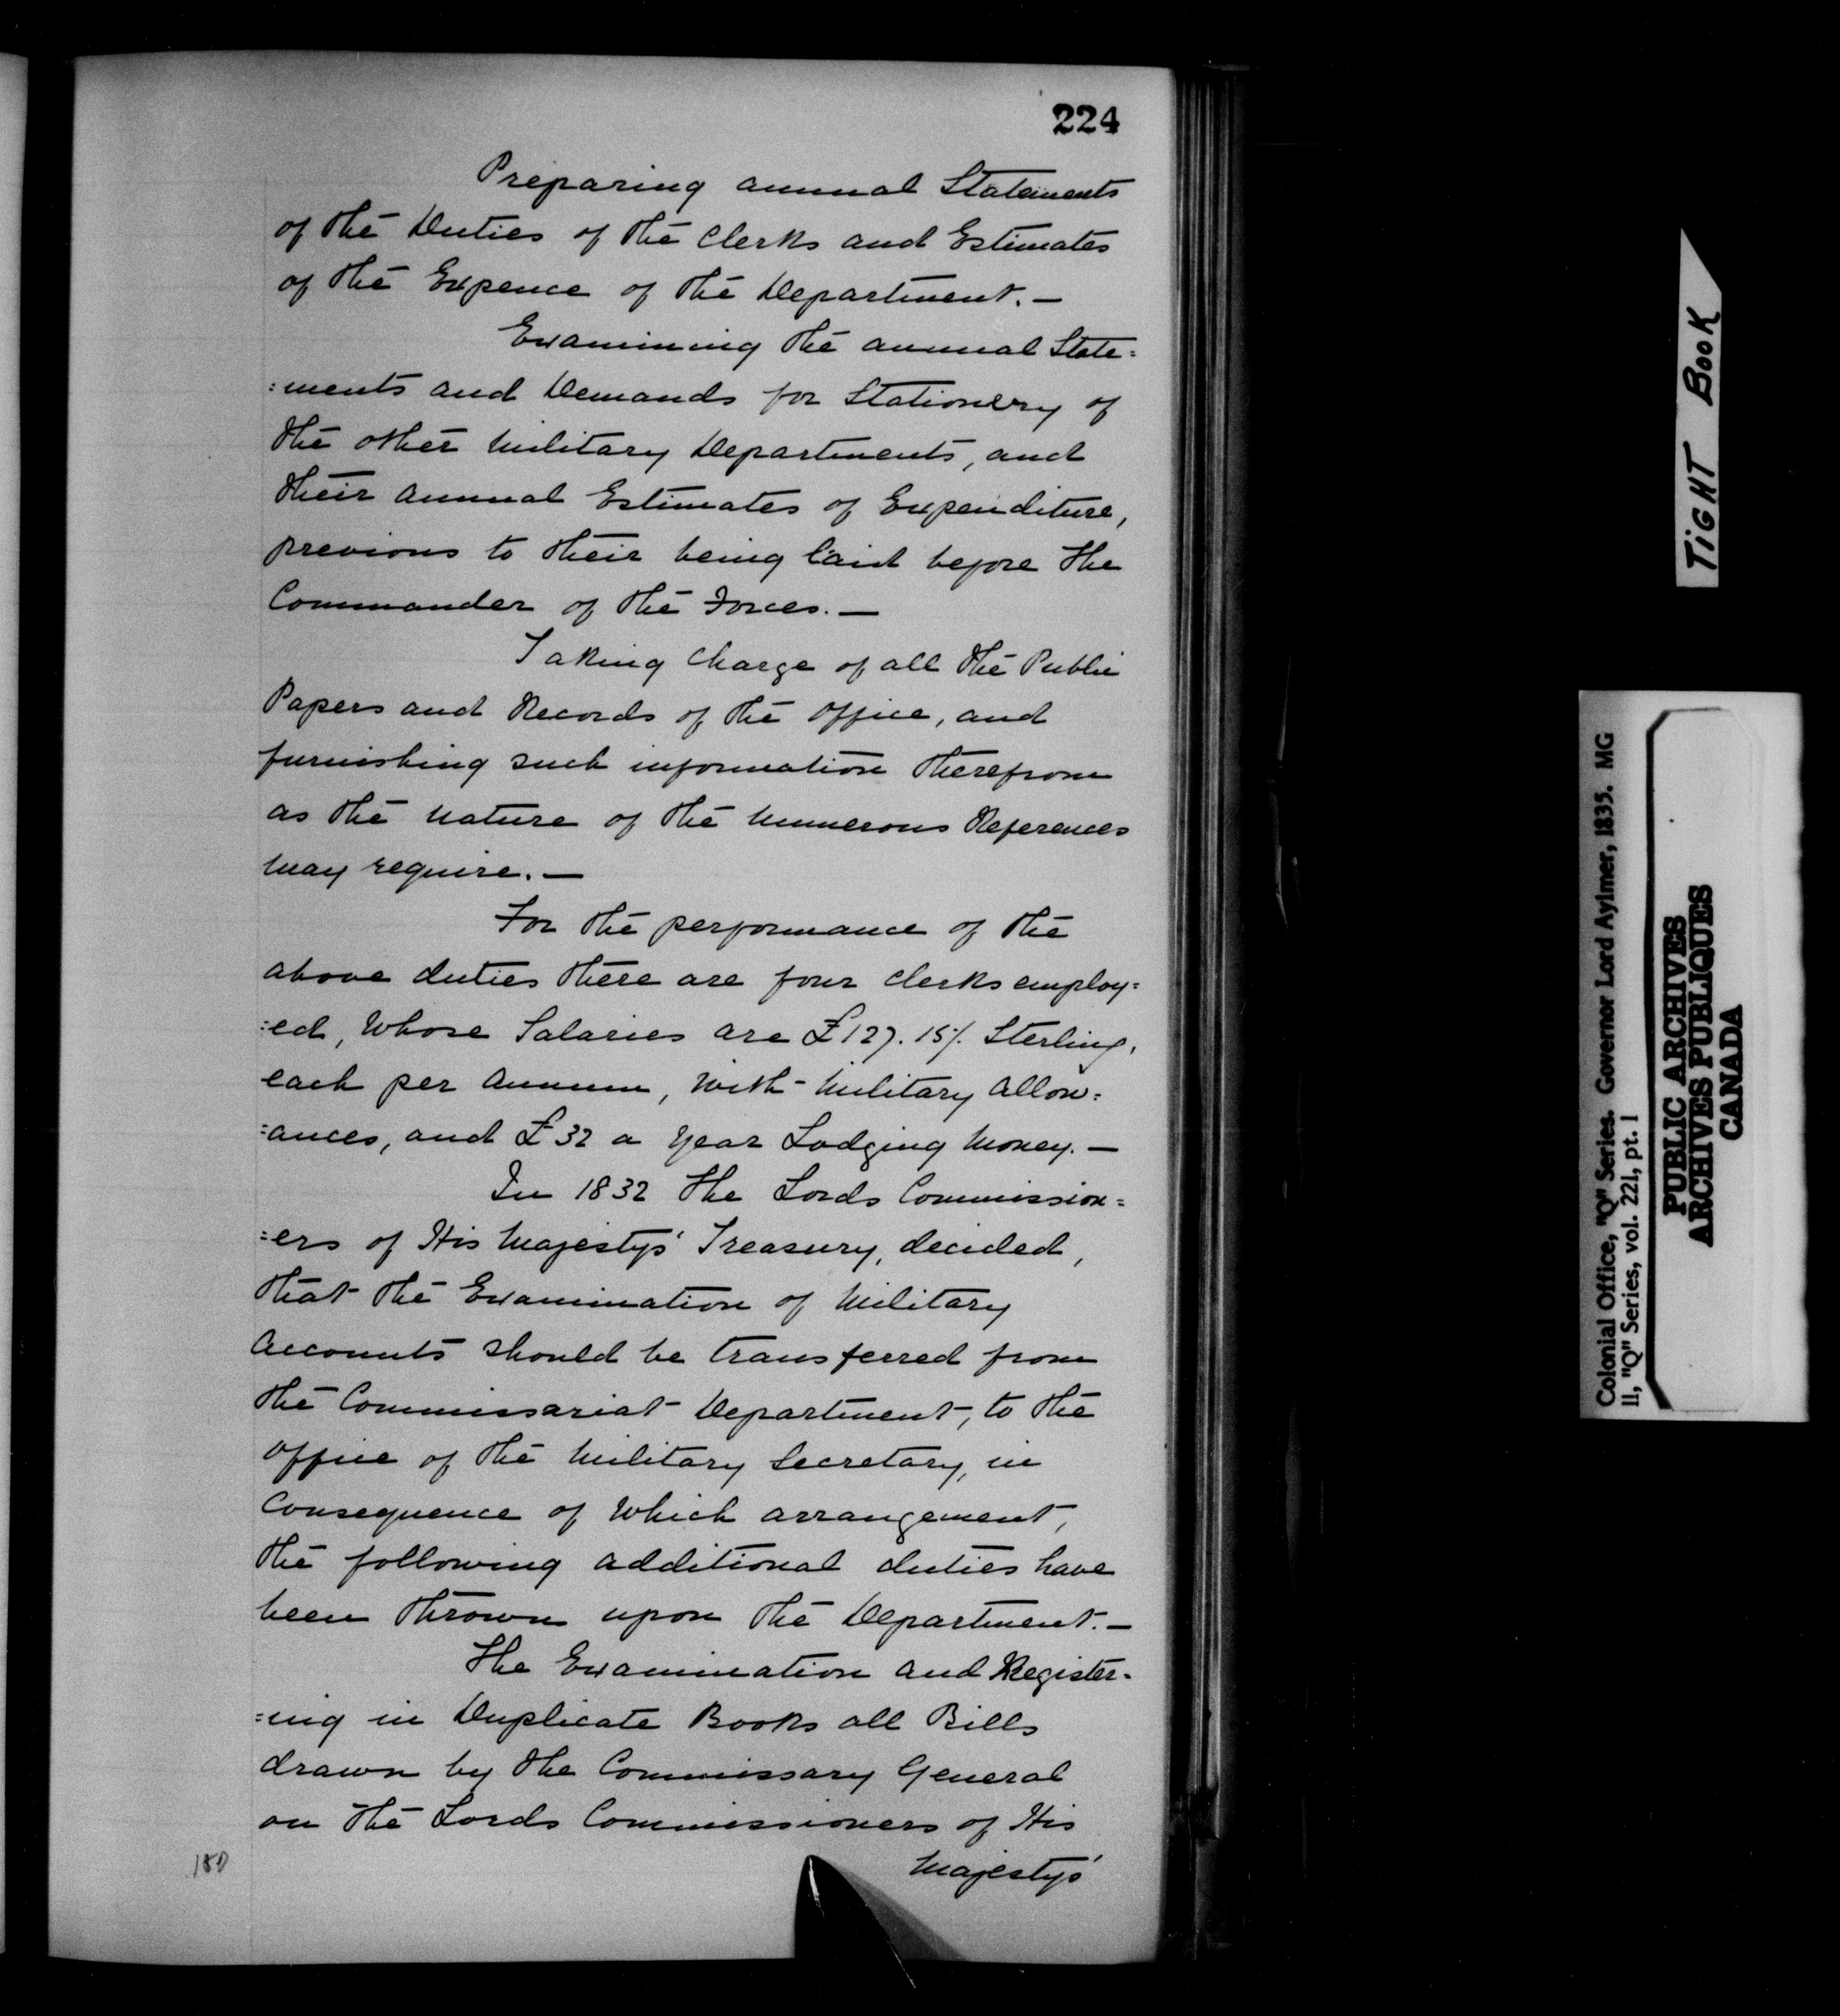 224
Preparing annual Statements
of the Duties of the Clerks and Estimates
of the Expence of the Department. —
Examining the annual State=
=ments and Demands for Stationery of
the other Military Departments, and
their annual Estimates of Expenditure,
previous to their being laid before the
Commander of the Forces. —
Taking charge of all the Public
Papers and Records of the Office, and
furnishing such information therefrom
as the nature of the numerous References
may require. —
For the performance of the
above duties there are four clerks employ=
=ed, whose Salaries are £127. 15/. Sterling,
each per annum, with Military Allow=
=ances, and £32 a year Lodging Money. —
In 1832 the Lords Commission=
=ers of His Majestys' Treasury, decided,
that the Examination of Military
Accounts should be transferred from
the Commissariat Department, to the
Office of the Military Secretary, in
Consequence of which arrangement,
the following additional duties have
been thrown upon the Department. —
The Examination and Register=
=ing in Duplicate Books all Bills
drawn by the Commissary General
on the Lords Commissioners of His
Majestys'
TIGHT BOOK
Colonial Office, "Q" Series. Governor Lord Aylmer, 1835. MG
11, "Q" Series, vol. 221, pt. 1
PUBLIC ARCHIVES
ARCHIVES PUBLIQUES
CANADA